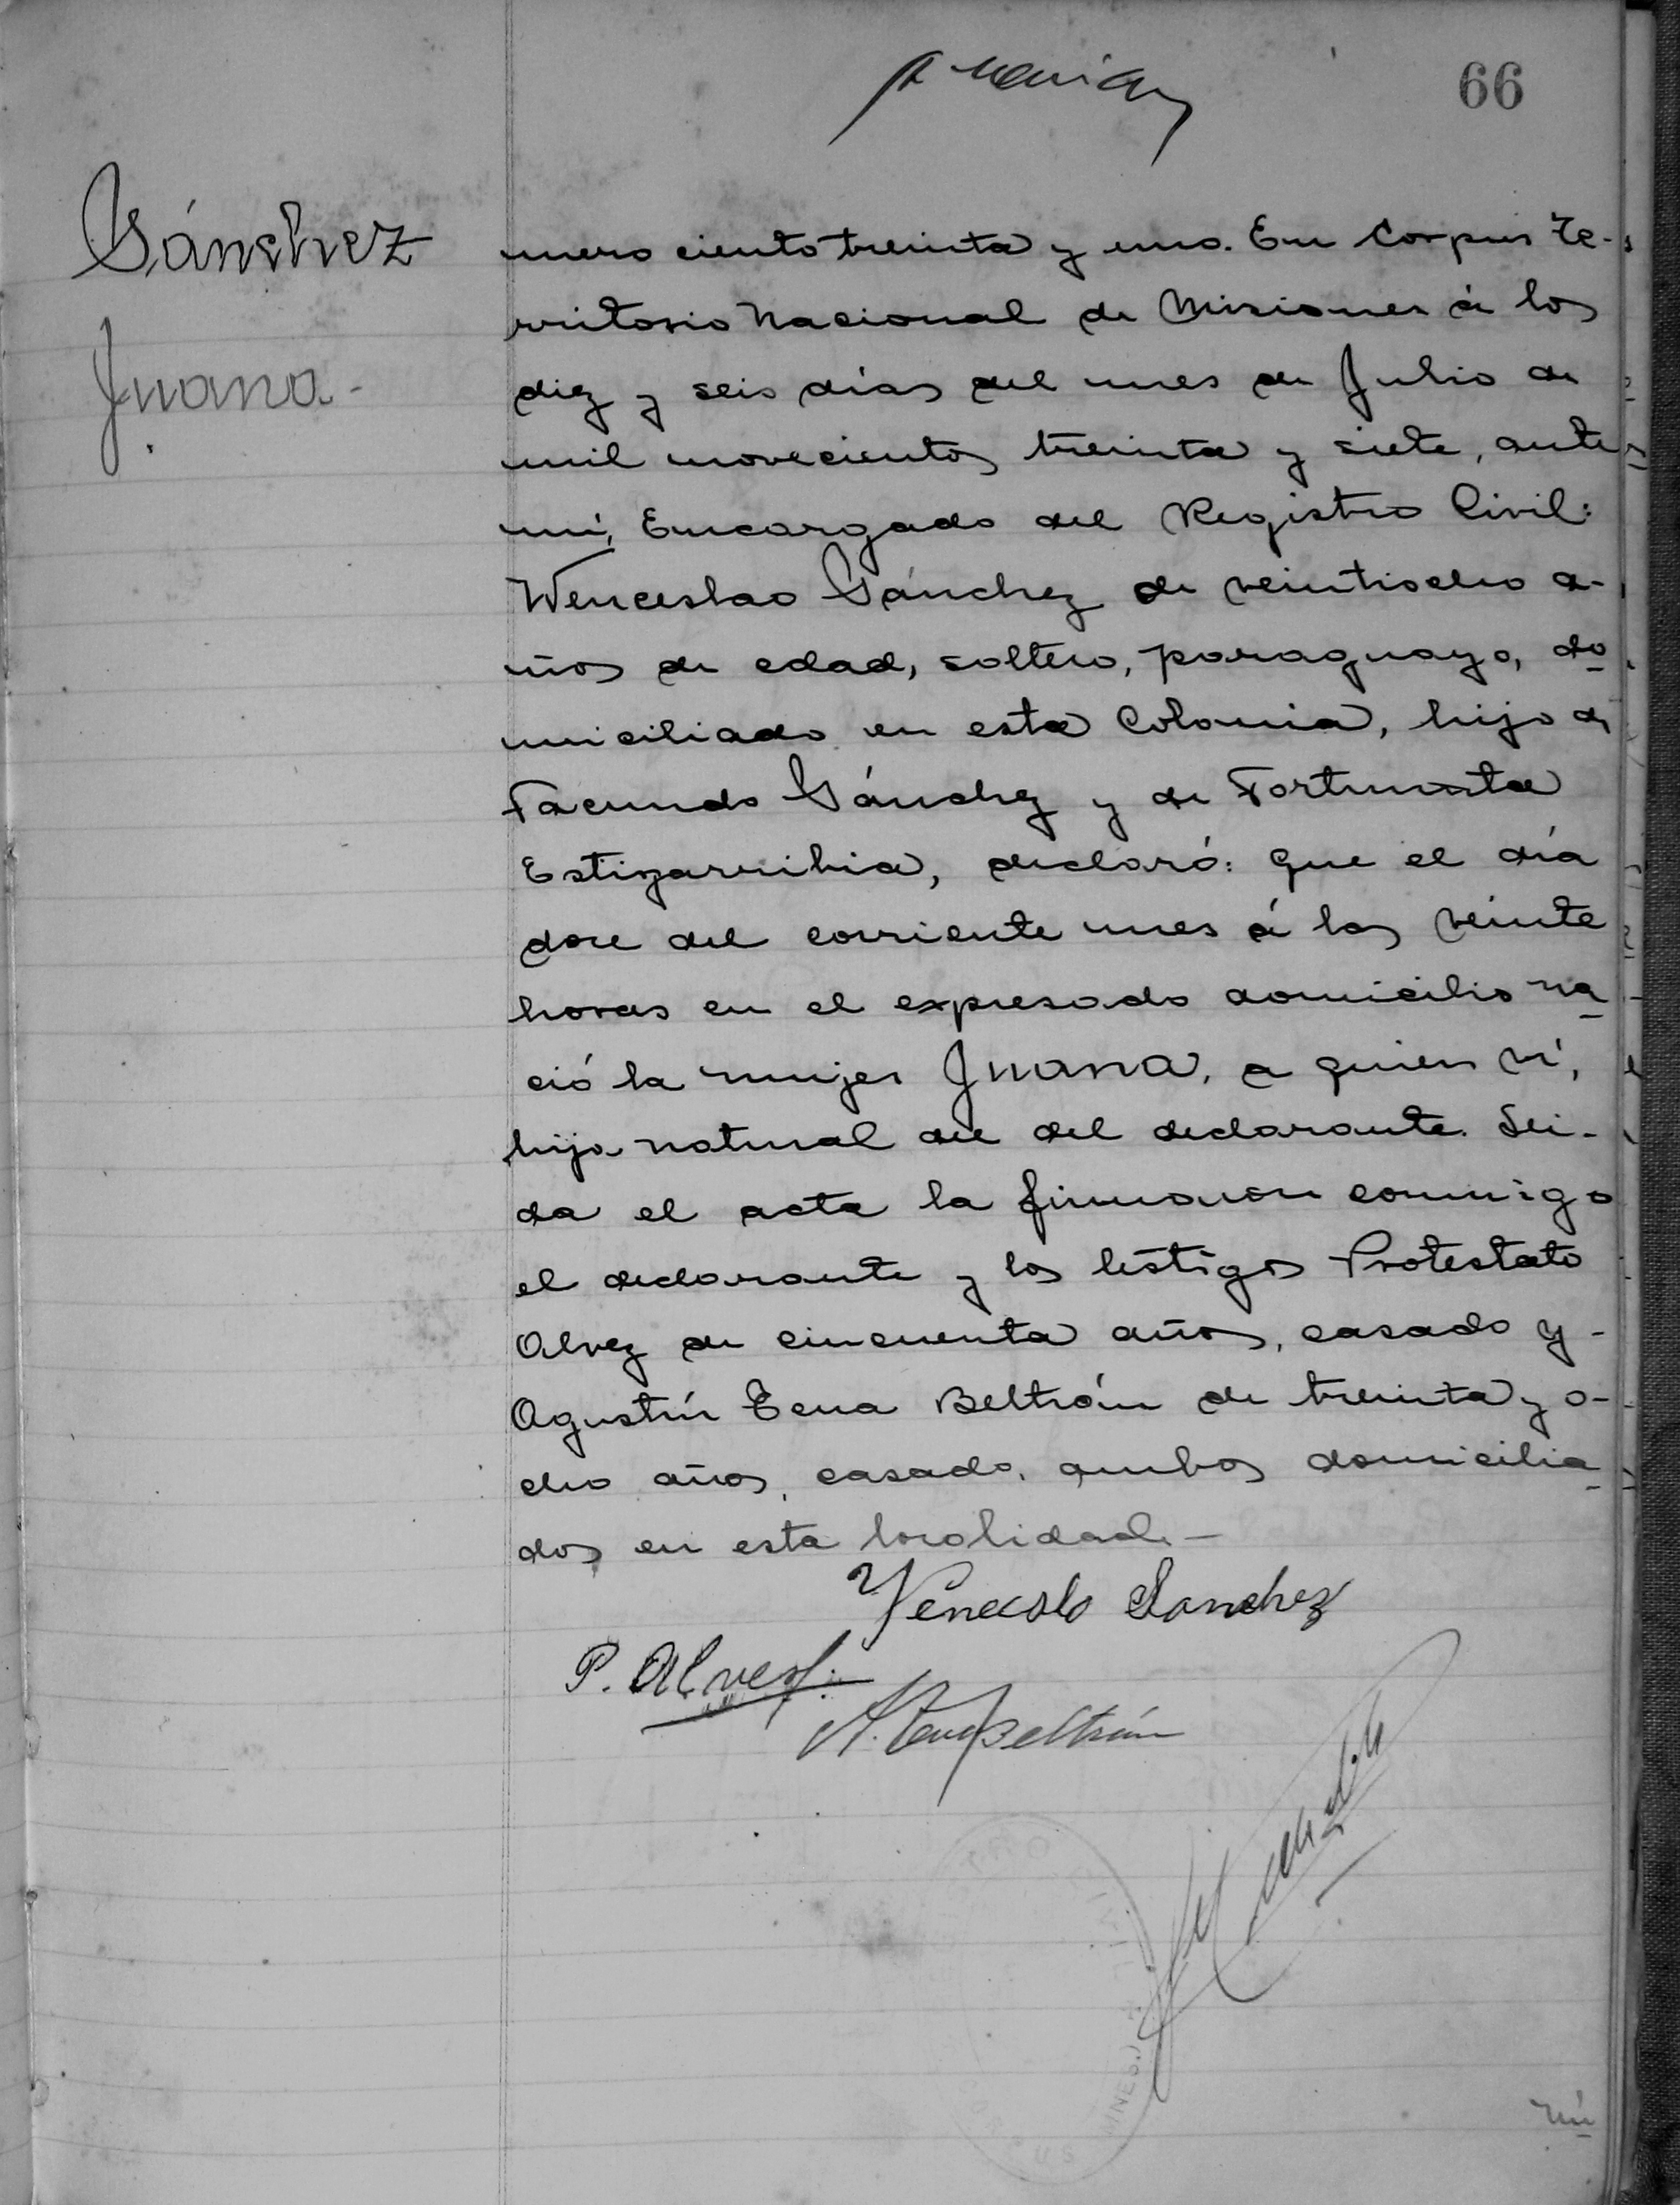 66
Sánchez
Juana-
mero ciento treinta y uno. En Corpus te-
rritorio Nacional de Misiones á los
diez y seis días del mes de Julio de
mil novecientos treinta y siete, ante
mí, Encargado del Registro Civil:
Wenceslao Sánchez de veintiocho a-
ños de edad, soltero, paraguayo, do
miciliado en esta Colonia, hijo de
Facundo Sánchez y de Fortunata
Estigarribia, declaró: Que el día
doce del corriente mes á las veinte
horas en el expresado domicilio na
ció la mujer Juana, a quien ví,
hija natural del del declarante. Lei-
da el acta la firmaron conmigo
el declarante y los testigos Protestato
Alvez de cincuenta años, casado y-
Agustín Tena Beltrán de treinta y o-
cho años, casado, ambos domicilia
dos en esta localidad.-
Venceslo Sanchez
P. Alvez.
A. Tena Beltrán
nú